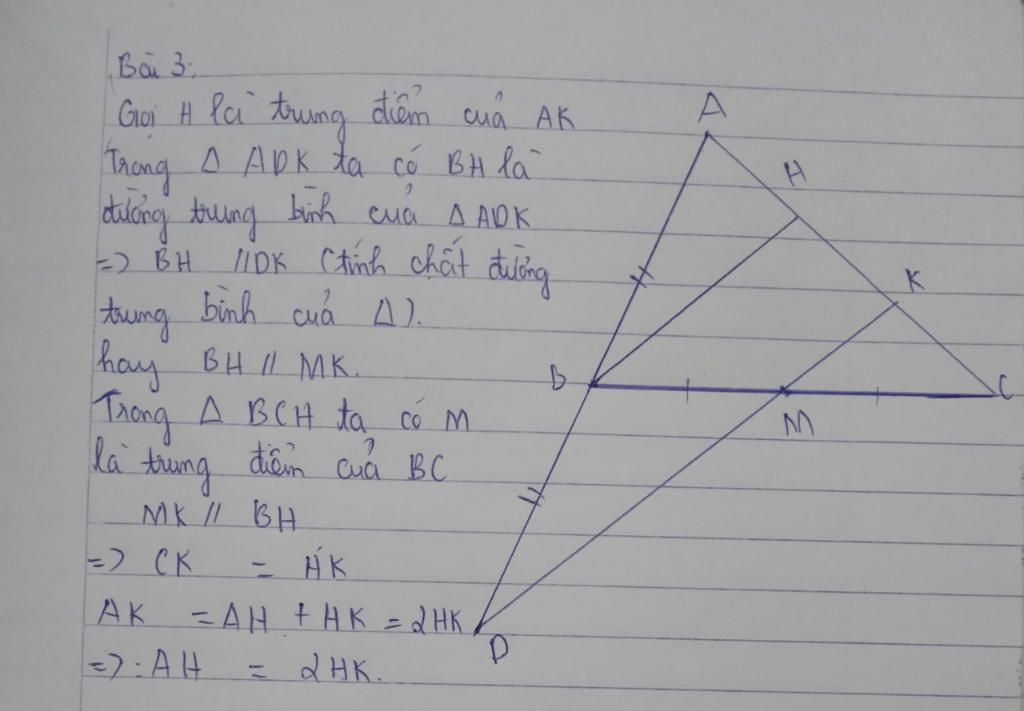 Bài 3:
Gọi H là trung điểm của AK
Trong Δ ADK ta có BH là
đường trung bình của Δ ADK
=> BH // DK (tính chất đường
trung bình của Δ).
hay BH // MK.
Trong Δ BCH ta có M
là trung điểm của BC
MK // BH
=> CK = HK
AK = AH + HK = 2HK
=> : AH = 2HK.
A
H
K
B
M
C
D